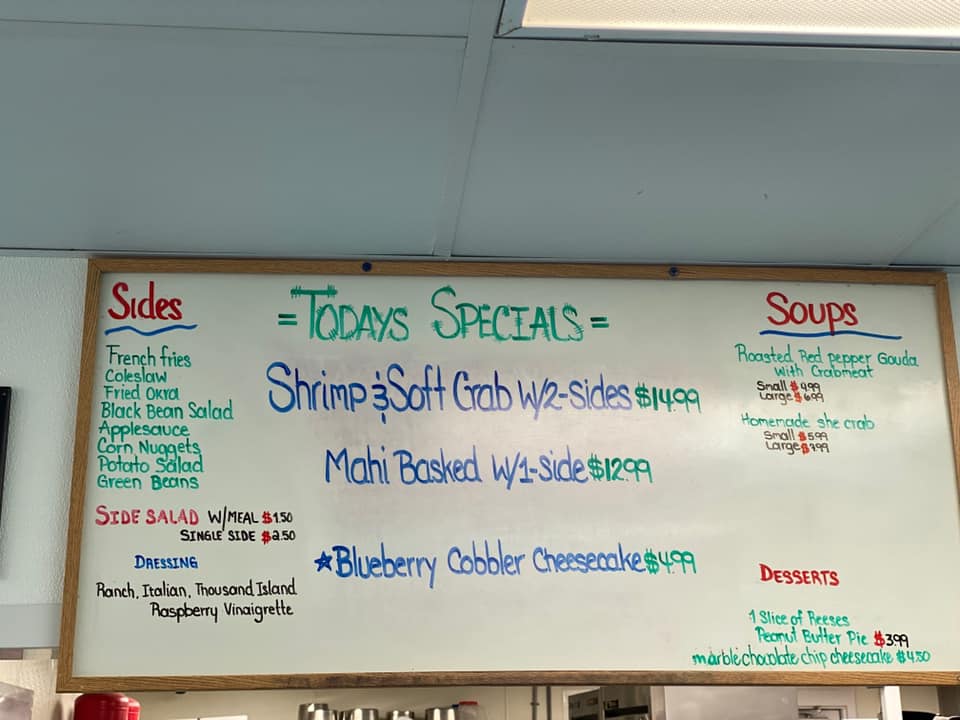 Sides
French fries
Coleslaw
Fried Okra
Black Bean Salad
Applesauce
Corn Nuggets
Potato Salad
Green Beans
SIDE SALAD W/MEAL $1.50
SINGLE SIDE $2.50
DRESSING
Ranch, Italian, Thousand Island
Raspberry Vinaigrette
= TODAYS SPECIALS =
Shrimp & Soft Crab W/2-sides $14.99
Mahi Basked W/1-side $12.99
★Blueberry Cobbler Cheesecake $4.99
SOUPS
Roasted Red pepper Gouda
with Crabmeat
Small $4.99
Large $6.99
Homemade she crab
Small $5.99
Large $7.99
DESSERTS
1 Slice of Reeses
Peanut Butter Pie $3.99
marble chocolate chip cheesecake $4.50